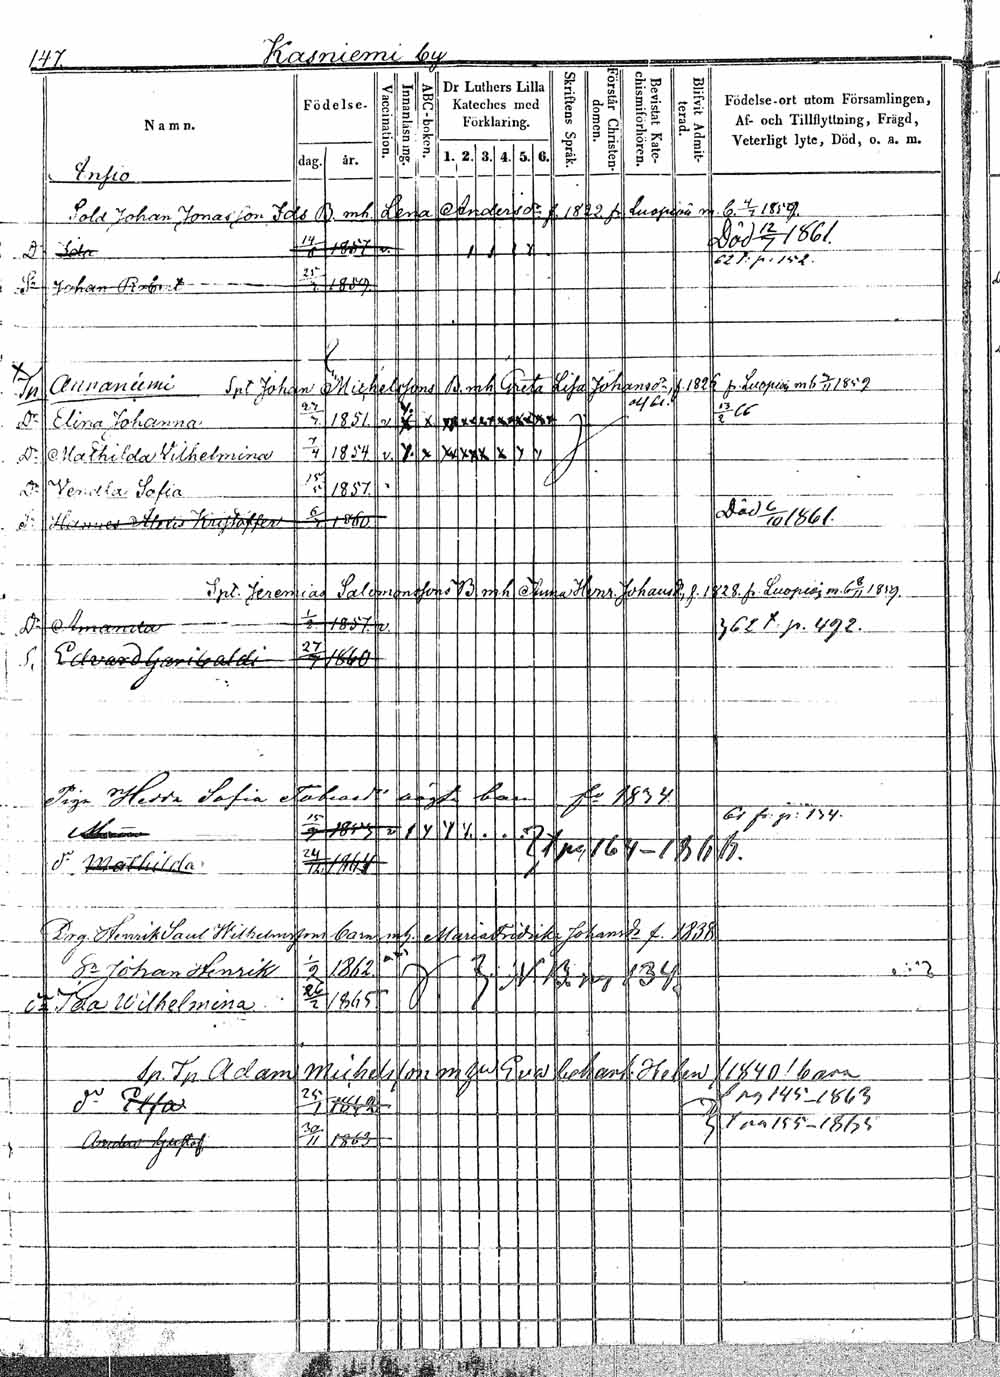 147. Kasniemi by
Namn.
Födelse-
dag. år.
Vaccination.
Innanläsning.
ABC-boken.
Dr Luthers Lilla Kateches med Förklaring.
1. 2. 3. 4. 5. 6.
Skriftens Språk.
Förstår Christendomen.
Bevistat Katechismiförhören.
Blifvit Admitterad.
Födelse-ort utom Församlingen, Af- och Tillflyttning, Frägd, Veterligt lyte, Död, o. a. m.
Ansio
Sold Johan Jonasson Ids B. mh. Lena Andersdr f. 1822 fr. Luopiois m. b. 1859.
Dr Ida 14/6 1857 v. Död 12/7 1861.
62 Tr. p. 152.
Sn Johan Robert 25/2 1859.
Tp Annaniemi Spt Johan Michelssons B. mh Greta Lisa Johansdr, f. 1826 fr. Luopiois m b 1859
Dr Elina Johanna 27/7 1851. v x x 13/2 66
Dr Mathilda Vilhelmina 7/4 1854 v. x
Dr Vendla Sofia 15/5 1857.
Sn Kristoffer 6/7 1860 Död 6/10 1861.
Spt. Jeremias Salomonssons B. mh Anna Henr. Johansdr, f. 1828. fr. Luopiois m. b 8/11 1859.
Dr Amanda 1/2 1857. v. 62 Tr. p. 492.
S. Edvard Garibaldi 27/7 1860
Piga Hedda Sofia Tobiasdr oägta barn fö 1834
15/9 1853 v 61 fr. p. 134.
dr Mathilda 24/12 1864 pg 164-1866.
Drg. Henrik Saul Wilhelmssons barn mh. Maria Fridrika Johansdr f. 1838
Sn Johan Henrik 1/9 1862 N. B. pg 134.
dr Ida Wilhelmina 26/2 1865.
Sp. Tp Adam Michelsson m h Eva Johansdr Helen f 1840! barn
dr Effa 25/1 1862 pg 145-1863
Anders Gustaf 30/11 1863 pg 155-1865